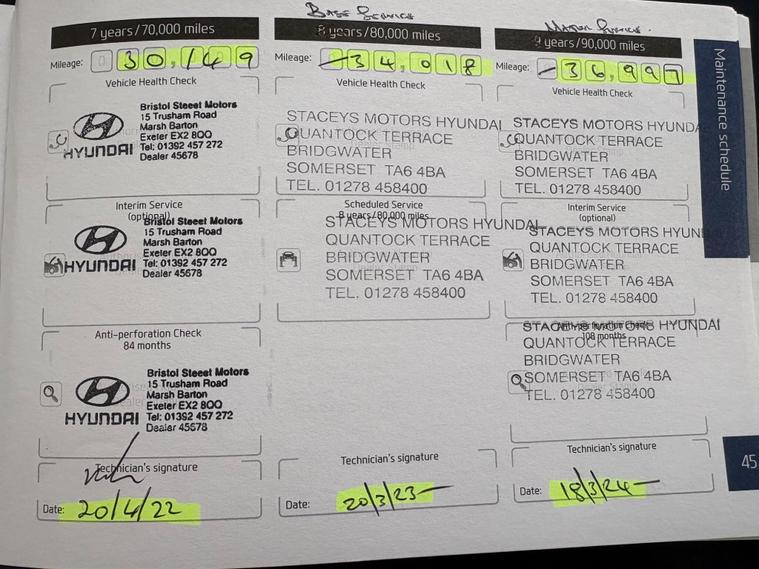 BASE SERVICE
MAJOR SERVICE.
7 years/70,000 miles
Mileage: 0 30,149
Vehicle Health Check
HYUNDAI
Bristol Steeet Motors
15 Trusham Road
Marsh Barton
Exeter EX2 8OO
Tel: 01392 457 272
Dealer 45678
Interim Service
(optional)
HYUNDAI
Bristol Steeet Motors
15 Trusham Road
Marsh Barton
Exeter EX2 8OO
Tel: 01392 457 272
Dealer 45678
Anti-perforation Check
84 months
HYUNDAI
Bristol Steeet Motors
15 Trusham Road
Marsh Barton
Exeter EX2 8OO
Tel: 01392 457 272
Dealer 45678
Technician's signature
Date: 20/4/22
8 years/80,000 miles
Mileage: -34,018
Vehicle Health Check
STACEYS MOTORS HYUNDAI
QUANTOCK TERRACE
BRIDGWATER
SOMERSET TA6 4BA
TEL. 01278 458400
Scheduled Service
8 years/80,000 miles
STACEYS MOTORS HYUNDAI
QUANTOCK TERRACE
BRIDGWATER
SOMERSET TA6 4BA
TEL. 01278 458400
Technician's signature
Date: 20/3/23
9 years/90,000 miles
Mileage: -36,997
Vehicle Health Check
STACEYS MOTORS HYUNDA
QUANTOCK TERRACE
BRIDGWATER
SOMERSET TA6 4BA
TEL. 01278 458400
Interim Service
(optional)
STACEYS MOTORS HYUN
QUANTOCK TERRACE
BRIDGWATER
SOMERSET TA6 4BA
TEL. 01278 458400
108 months
STACEYS MOTORS HYUNDAI
QUANTOCK TERRACE
BRIDGWATER
SOMERSET TA6 4BA
TEL. 01278 458400
Technician's signature
Date: 18/3/24
Maintenance schedule
45